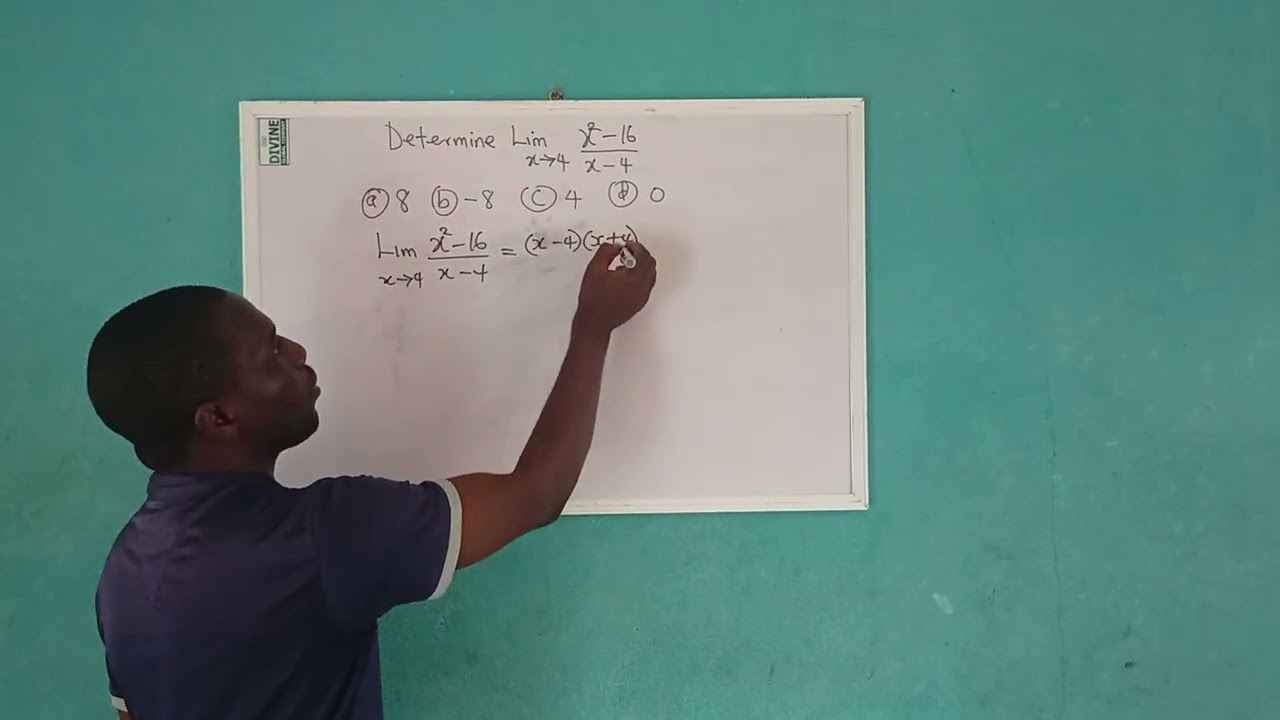 DIVINE
Determine Lim x→4 x²-16/x-4
ⓐ 8 ⓑ -8 ⓒ 4 ⓓ 0
Lim x→4 x²-16/x-4 = (x-4)(x+4)